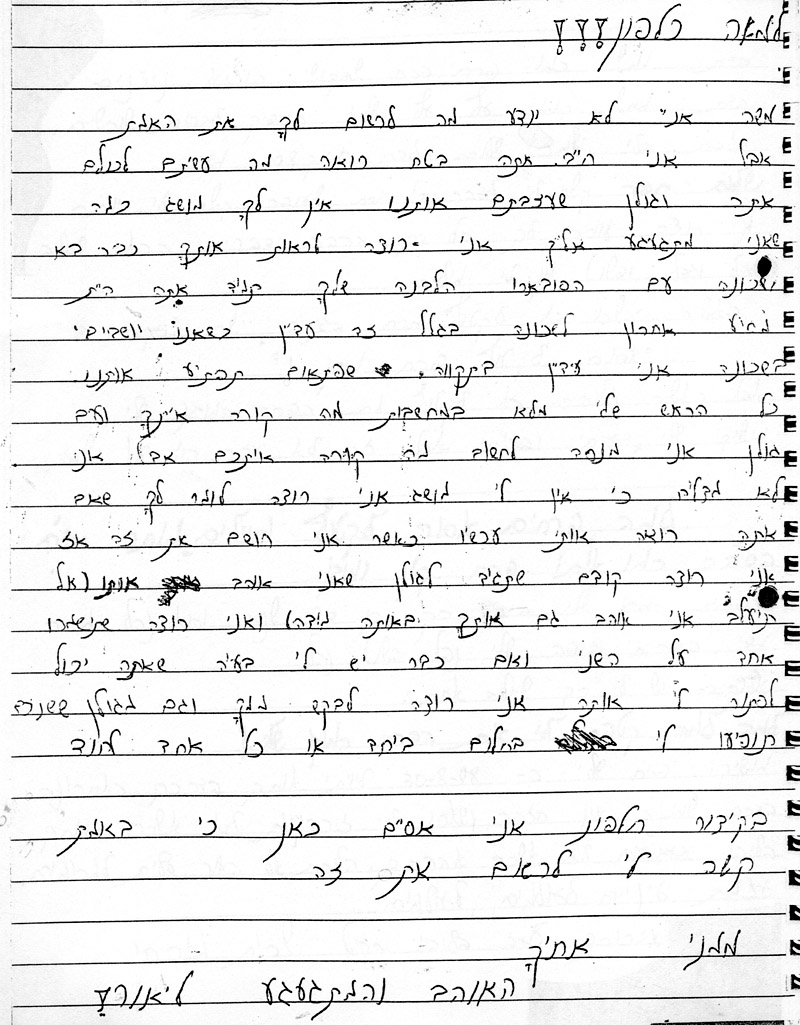 כלפון
משה אני לא יודע מה לרשום לך את האמת
אבל אני ח״ב אתה בטח רואה מה עשיתם לכולם
אתה וגולן שעזבתם אותנו אין לך מושג כמה
שאני מתגעגע אליך אני רוצה לראות אותך כבר בא
לשכונה עם הסובארו הלבנה שלך תמיד אתה היית
מגיע אחרון לשכונה בגלל זה עדין כשאנו יושבים
בשכונה אני עידין בתקווה שפתאום תפתיע אותנו
כל הראש שלי מלא במחשבות מה קורה איתך ועם
גולן אני מנסה לחשוב מה קורה איתכם אבל אני
לא מצליח כי אין לי מושג אני רוצה לומר לך שאם
אתה רואה אותי עכשיו כאשר אני רושם את זה אז
אני רוצה קודם שתגיד לגולן שאני אוהב אותו (אל
תיעלב אני אוהב גם אותך באותה מידה) ואני רוצה שתישמרו
אחד על השני ואם כבר יש לי בעיה שאתה יכול
לפתור לי אותה אני רוצה לבקש ממך וגם מגולן
תופיעו לי בחלום ביחד או כל אחד לחוד
בקיצור חלפון אני אסים כאן כי באמת
קשה לי לרשום את זה
ממני אחיך
האוהב והמתגעגע ליאור